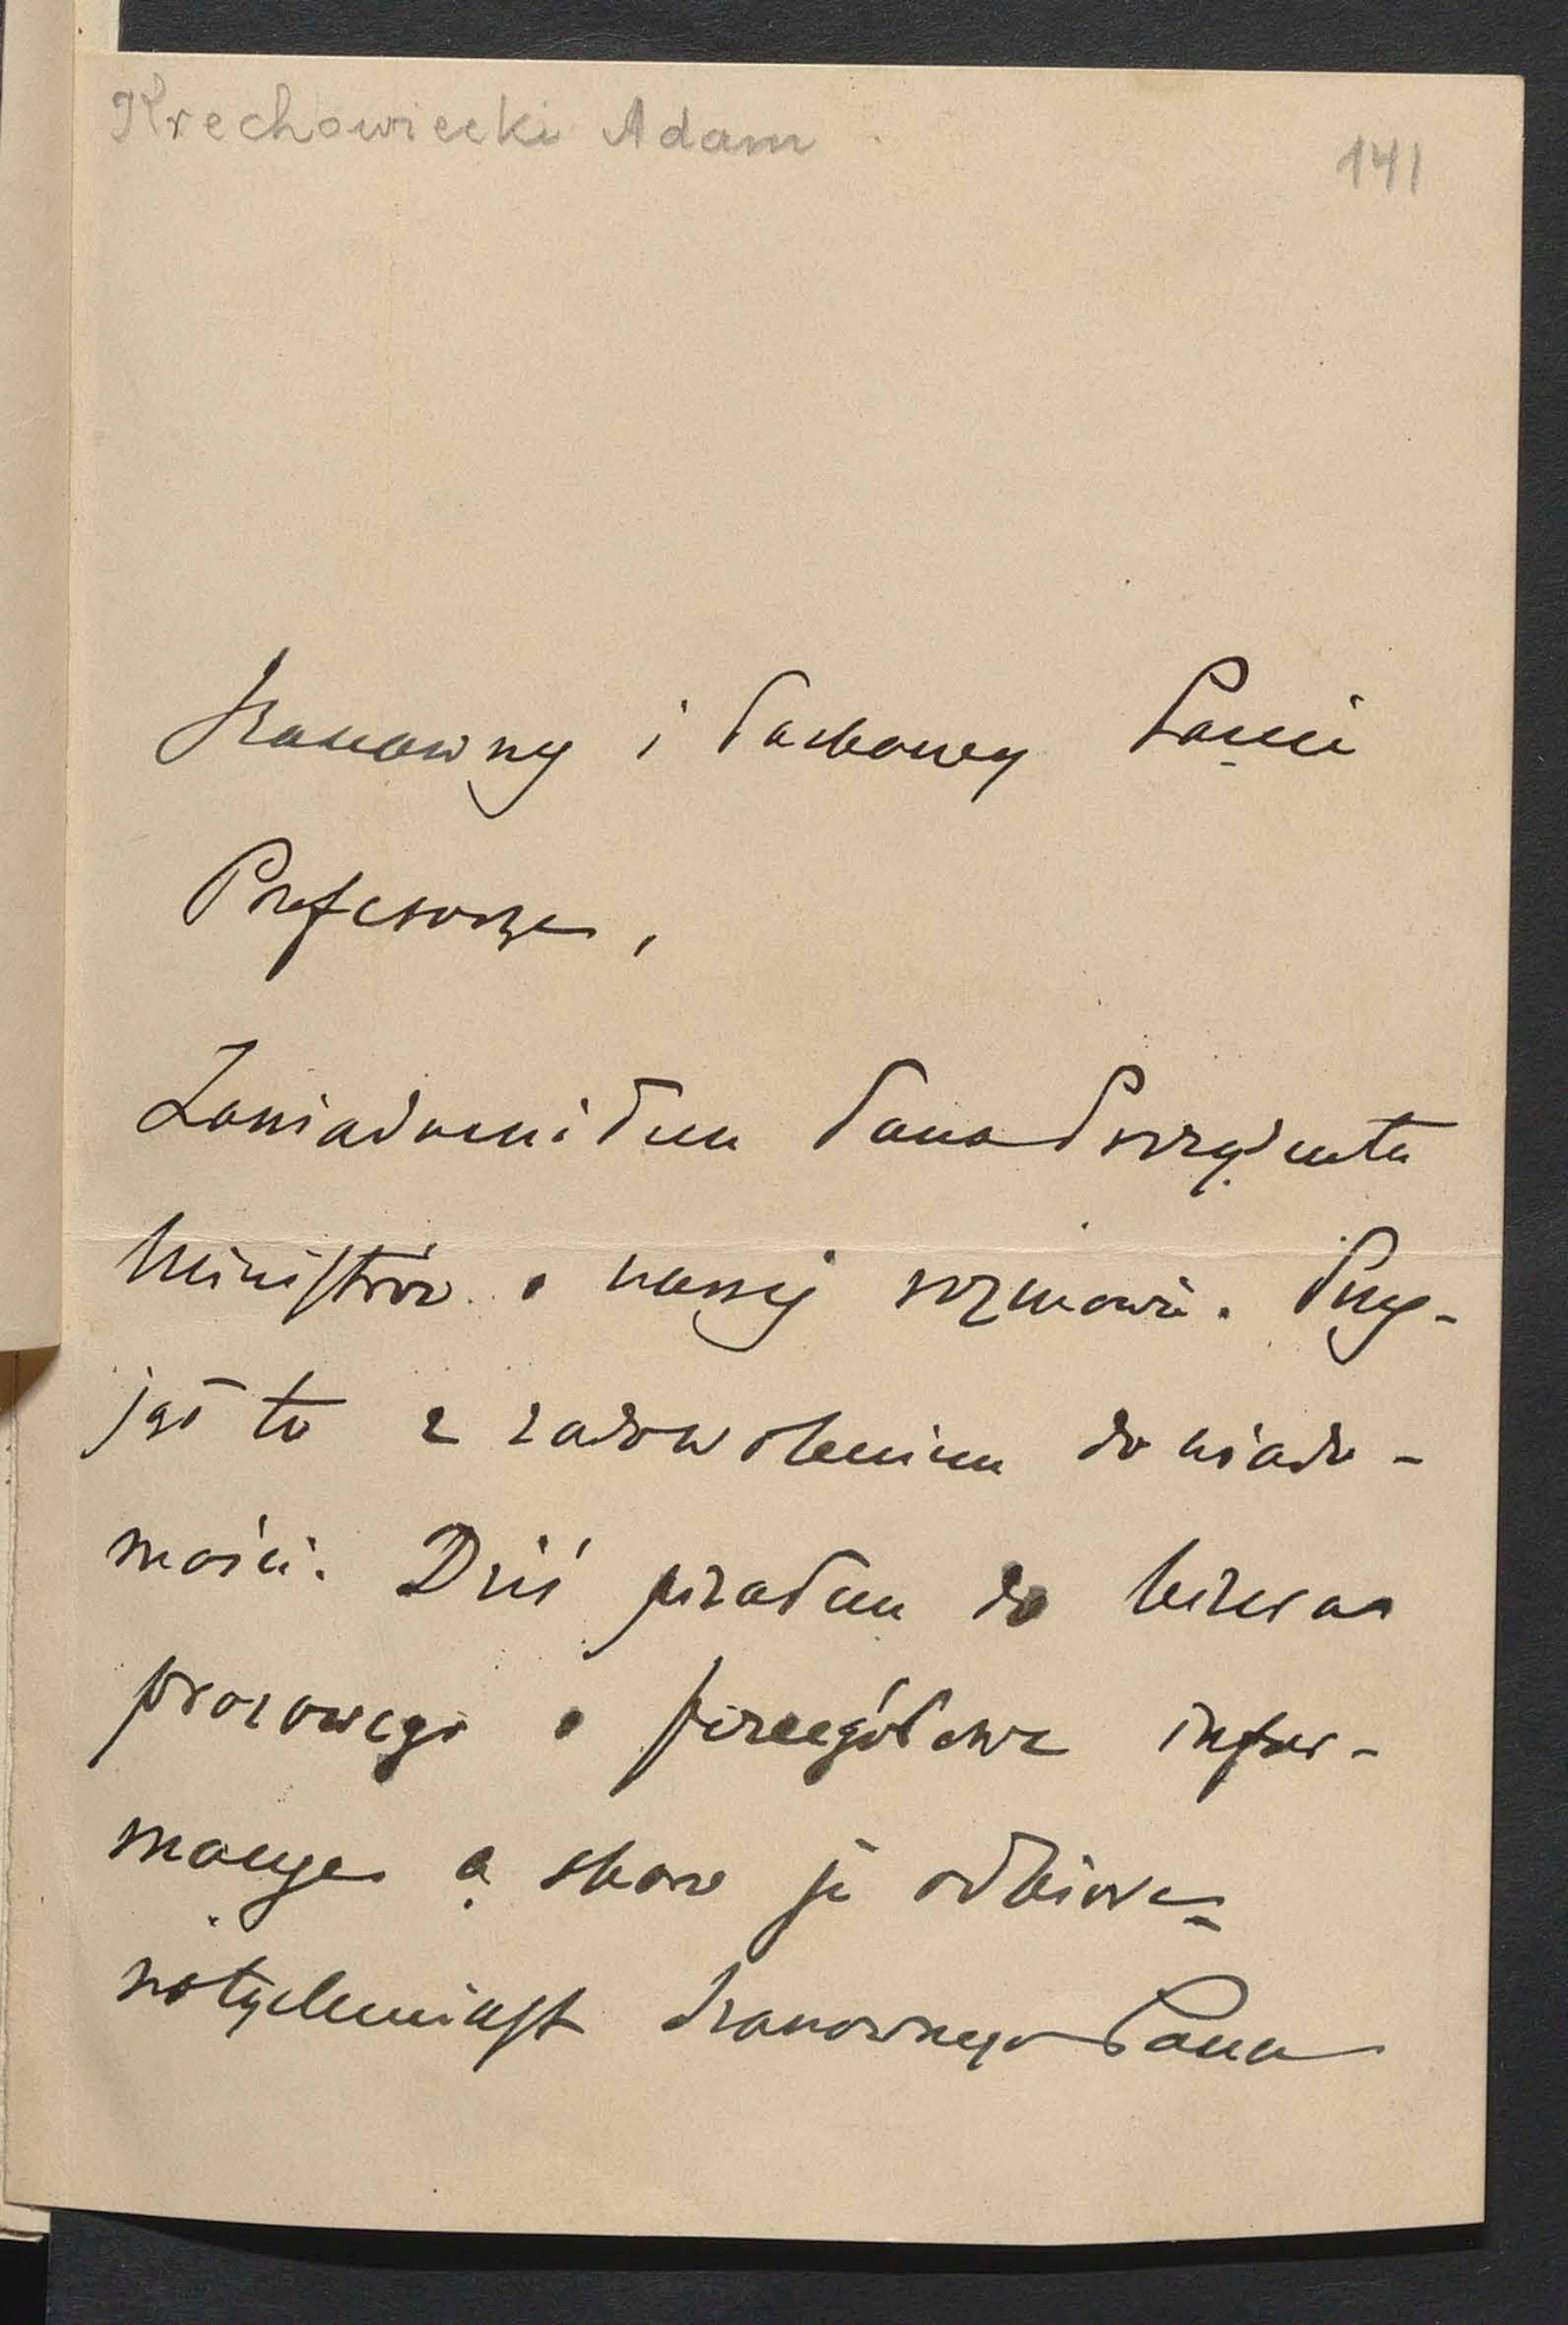 Krechowiecki Adam
141
Szanowny i Łaskawy Panie
Profesorze,
Zawiadomiłem Pana Prezydenta
Ministrów o naszej rozmowie. Przy-
jął to z zadowoleniem do wiado-
mości. Dziś pisałem do biura
prasowego o szczegółowe infor-
macye a skoro je odbiorę
natychmiast Szanownego Pana